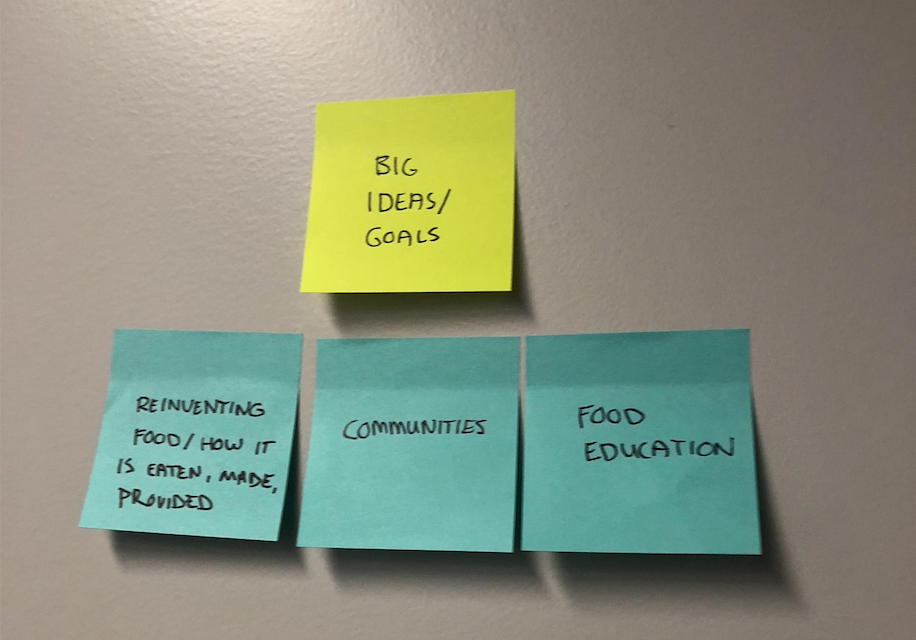 BIG
IDEAS/
GOALS
REINVENTING
FOOD/HOW IT
IS EATEN, MADE,
PROVIDED
COMMUNITIES
FOOD
EDUCATION